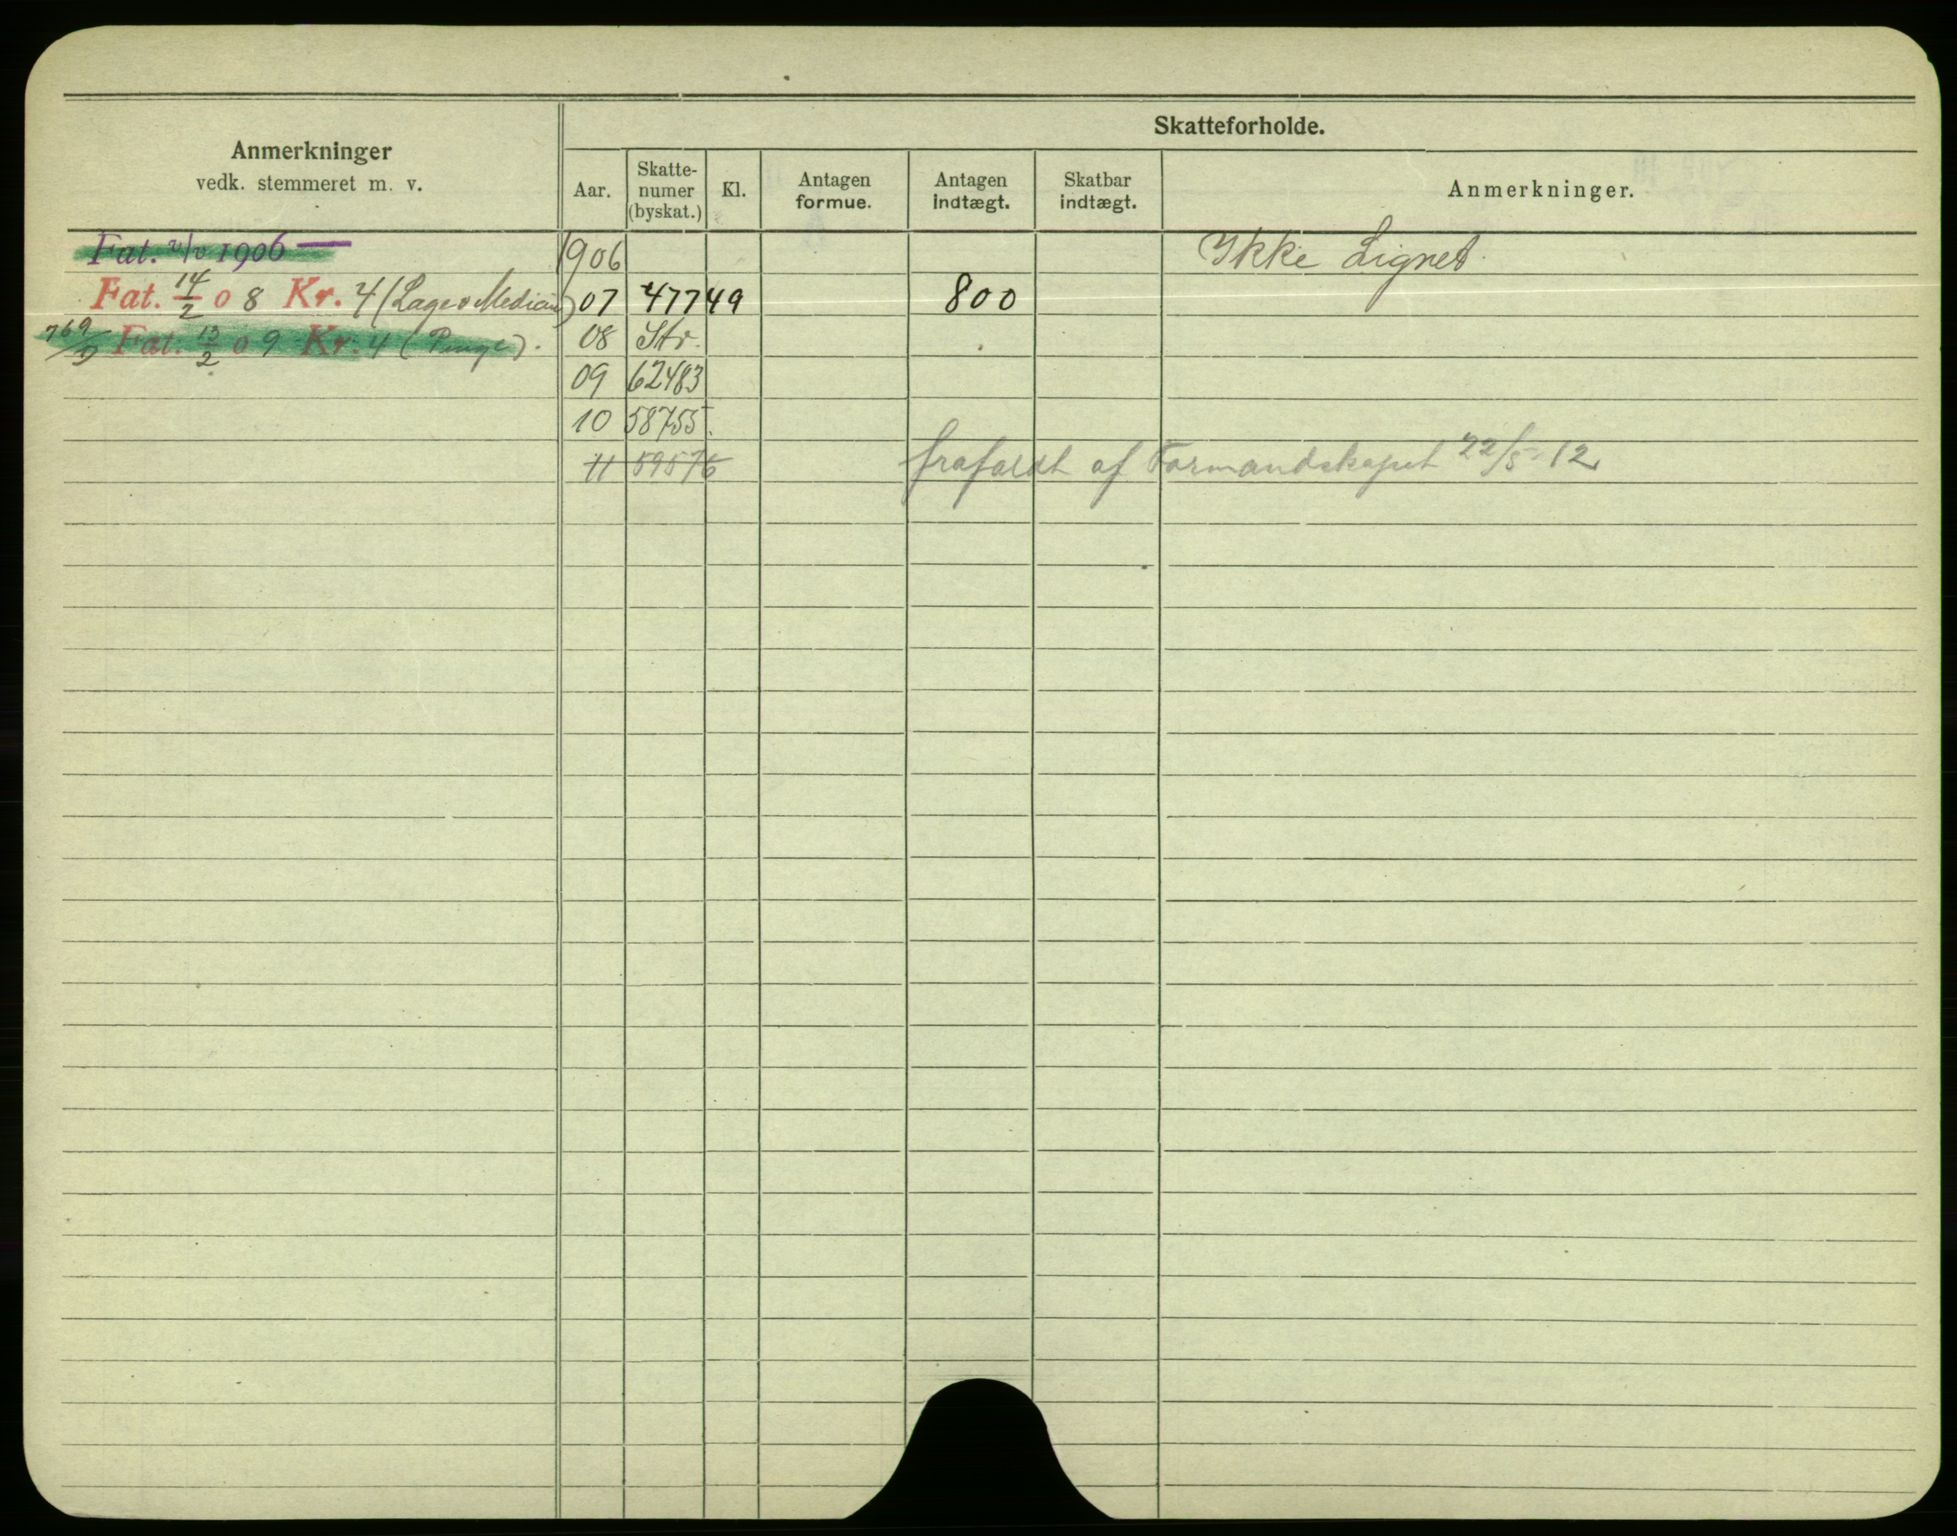 Anmerkninger
vedk. stemmeret m. v.
Skatteforholde.
Aar.
Skatte-
numer
(byskat.)
Kl.
Antagen
formue.
Antagen
indtægt.
Skatbar
indtægt.
Anmerkninger.
Fat. 1906 —
1906 Ikke Lignet
Fat. 14/2 08 Kr. 4 (Læge o Medicin) 07 47749 800
769/9 Fat. 13/2 09 Kr. 4 (Penge). 08 Str.
09 62483
10 58755.
11 59576 frafaldt af Formandskapet 22/5-12